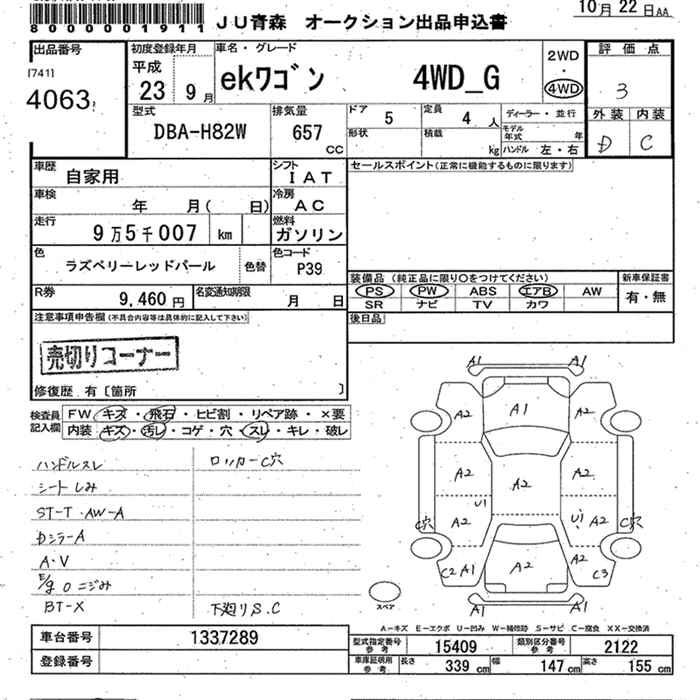 8000001911
JU青森 オークション出品申込書
10月 22日AA
出品番号
[741]
4063
初度登録年月
平成
23 9月
車名・グレード
ekワゴン 4WD_G
2WD
・
4WD
評価点
3
外装 内装
D C
型式
DBA-H82W
排気量
657
CC
ドア 5
形状
定員 4人
積載 kg
ディーラー・並行
モデル年式 年
ハンドル 左・右
車歴
自家用
シフト
IAT
車検
年 月( 日)
冷房
AC
走行
9万5千007 km
燃料
ガソリン
色
ラズベリーレッドパール
色替
色コード
P39
R券
9,460円
名変通知期限
月 日
セールスポイント(正常に機能するものに限ります)
装備品(純正品に限り○をつけてください)
PS PW ABS エアB AW
SR ナビ TV カワ
新車保証書
有・無
後日品
注意事項申告欄(不具合内容等は具体的に記入して下さい)
売切りコーナー
修復歴 有〔箇所 〕
検査員記入欄
FW キズ・飛石・ヒビ割・リペア跡・×要
内装 キズ・汚レ・コゲ・穴・スレ・キレ・破レ
ハンドルスレ
シートしみ
ST-T・AW-A
Dミラ-A
A・V
E/g oニジみ
BT-X
ロッカーC穴
下廻りS.C
A1 A1
A2 A1 A2
A2 A2 A2
U1
A2 U1 A2
C穴 C穴
C2 A1 A2 A2 C3
A1 A1
スペア
A-キズ E-エクボ U-凹み W-補修跡 S-サビ C-腐食 XX-交換済
車台番号
1337289
登録番号
型式指定番号
参考
15409
類別区分番号
参考
2122
車庫証明用
参考
長さ 339cm
幅 147cm
高さ 155cm